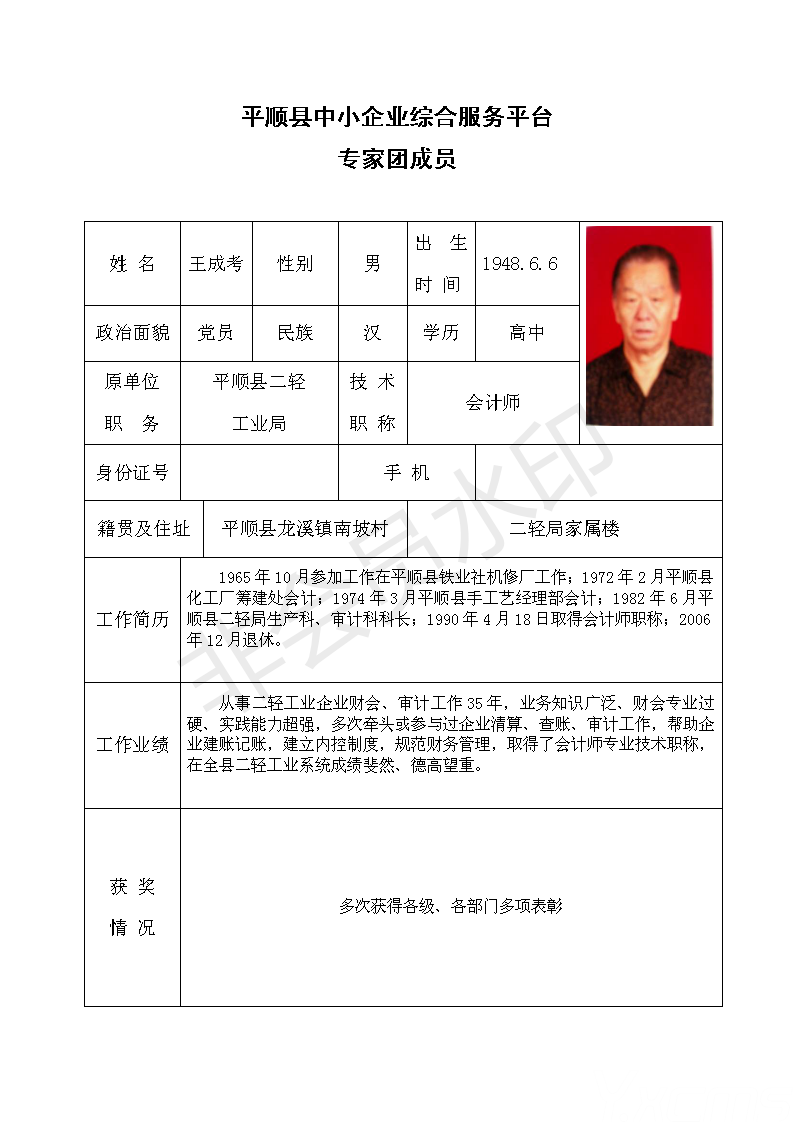 平顺县中小企业综合服务平台
专家团成员
姓 名 王成考 性别 男 出 生 时 间 1948.6.6
政治面貌 党员 民族 汉 学历 高中
原单位 职 务 平顺县二轻 工业局 技 术 职 称 会计师
身份证号 手 机
籍贯及住址 平顺县龙溪镇南坡村 二轻局家属楼
工作简历
1965年10月参加工作在平顺县铁业社机修厂工作；1972年2月平顺县
化工厂筹建处会计；1974年3月平顺县手工艺经理部会计；1982年6月平
顺县二轻局生产科、审计科科长；1990年4月18日取得会计师职称；2006
年12月退休。
工作业绩
从事二轻工业企业财会、审计工作35年，业务知识广泛、财会专业过
硬、实践能力超强，多次牵头或参与过企业清算、查账、审计工作，帮助企
业建账记账，建立内控制度，规范财务管理，取得了会计师专业技术职称，
在全县二轻工业系统成绩斐然、德高望重。
获 奖
情 况
多次获得各级、各部门多项表彰
非会易水印